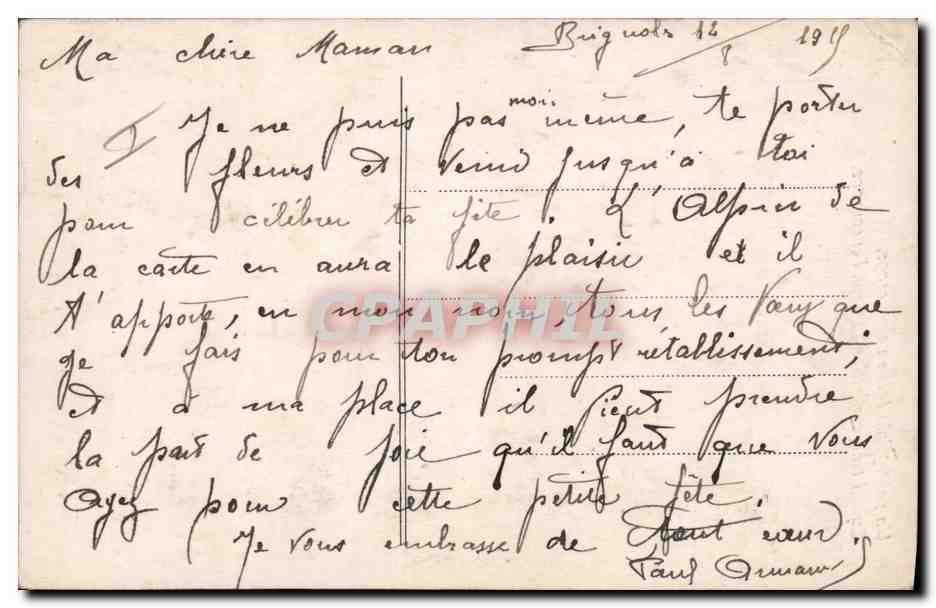 Ma chère Maman Brignoles 12/8 1915
I
Je ne puis pas moi-même, te porter
des fleurs et venir jusqu'à toi
pour célébrer ta fête. L'Alpin de
la carte en aura le plaisir et il
t'apporte, en mon nom, tous les vœux que
je fais pour ton prompt rétablissement;
et à ma place il vient prendre
la part de joie qu'il faut que vous
ayez pour cette petite fête.
Je vous embrasse de tout cœur.
Paul
CPAPHIL